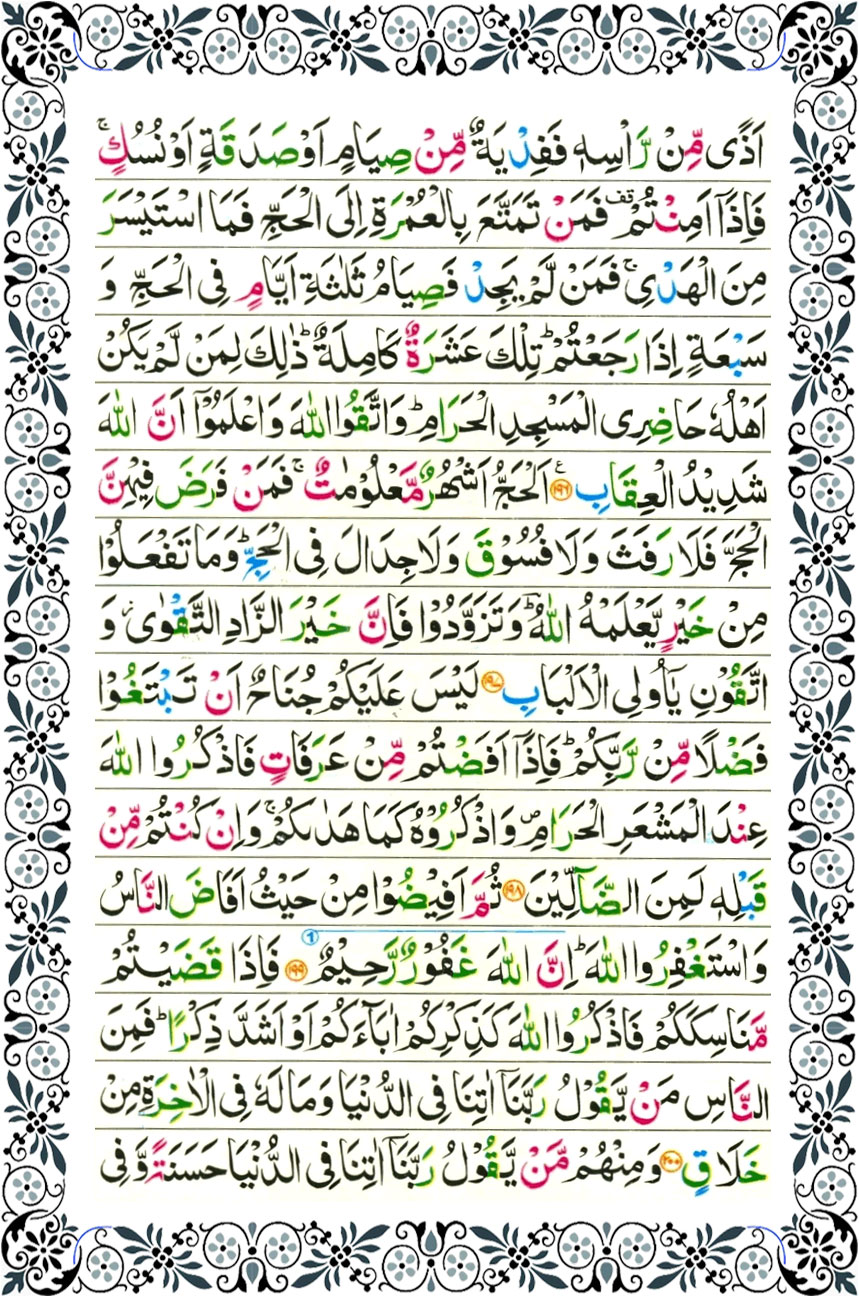 اَذًى مِّنْ رَّاْسِهٖ فَفِدْيَةٌ مِّنْ صِيَامٍ اَوْ صَدَقَةٍ اَوْ نُسُكٍ ۚ
فَاِذَاۤ اَمِنْتُمْ ۥقف فَمَنْ تَمَتَّعَ بِالْعُمْرَةِ اِلَى الْحَجِّ فَمَا اسْتَيْسَرَ
مِنَ الْهَدْىِ ۚ فَمَنْ لَّمْ يَجِدْ فَصِيَامُ ثَلٰثَةِ اَيَّامٍ فِى الْحَجِّ وَ
سَبْعَةٍ اِذَا رَجَعْتُمْ ؕ تِلْكَ عَشَرَةٌ كَامِلَةٌ ؕ ذٰلِكَ لِمَنْ لَّمْ يَكُنْ
اَهْلُهٗ حَاضِرِى الْمَسْجِدِ الْحَرَامِ ؕ وَاتَّقُوا اللّٰهَ وَاعْلَمُوْۤا اَنَّ اللّٰهَ
شَدِيْدُ الْعِقَابِ ۧ۱۹۶ اَلْحَجُّ اَشْهُرٌ مَّعْلُوْمٰتٌ ۚ فَمَنْ فَرَضَ فِيْهِنَّ
الْحَجَّ فَلَا رَفَثَ وَلَا فُسُوْقَ وَلَا جِدَالَ فِى الْحَجِّ ؕ وَمَا تَفْعَلُوْا
مِنْ خَيْرٍ يَّعْلَمْهُ اللّٰهُ ؔؕ وَتَزَوَّدُوْا فَاِنَّ خَيْرَ الزَّادِ التَّقْوٰى ؗ وَ
اتَّقُوْنِ يٰۤاُولِى الْاَلْبَابِ ۱۹۷ لَيْسَ عَلَيْكُمْ جُنَاحٌ اَنْ تَبْتَغُوْا
فَضْلًا مِّنْ رَّبِّكُمْ ؕ فَاِذَاۤ اَفَضْتُمْ مِّنْ عَرَفَاتٍ فَاذْكُرُوا اللّٰهَ
عِنْدَ الْمَشْعَرِ الْحَرَامِ ۪ وَاذْكُرُوْهُ كَمَا هَدٰٮكُمْ ۚ وَاِنْ كُنْتُمْ مِّنْ
قَبْلِهٖ لَمِنَ الضَّآلِّيْنَ ۱۹۸ ثُمَّ اَفِيْضُوْا مِنْ حَيْثُ اَفَاضَ النَّاسُ
وَاسْتَغْفِرُوا اللّٰهَ ؕ اِنَّ اللّٰهَ غَفُوْرٌ رَّحِيْمٌ ۱۹۹ فَاِذَا قَضَيْتُمْ
مَّنَاسِكَكُمْ فَاذْكُرُوا اللّٰهَ كَذِكْرِكُمْ اٰبَآءَكُمْ اَوْ اَشَدَّ ذِكْرًا ؕ فَمِنَ
النَّاسِ مَنْ يَّقُوْلُ رَبَّنَاۤ اٰتِنَا فِى الدُّنْيَا وَمَا لَهٗ فِى الْاٰخِرَةِ مِنْ
خَلَاقٍ ۲۰۰ وَمِنْهُمْ مَّنْ يَّقُوْلُ رَبَّنَاۤ اٰتِنَا فِى الدُّنْيَا حَسَنَةً وَّفِى